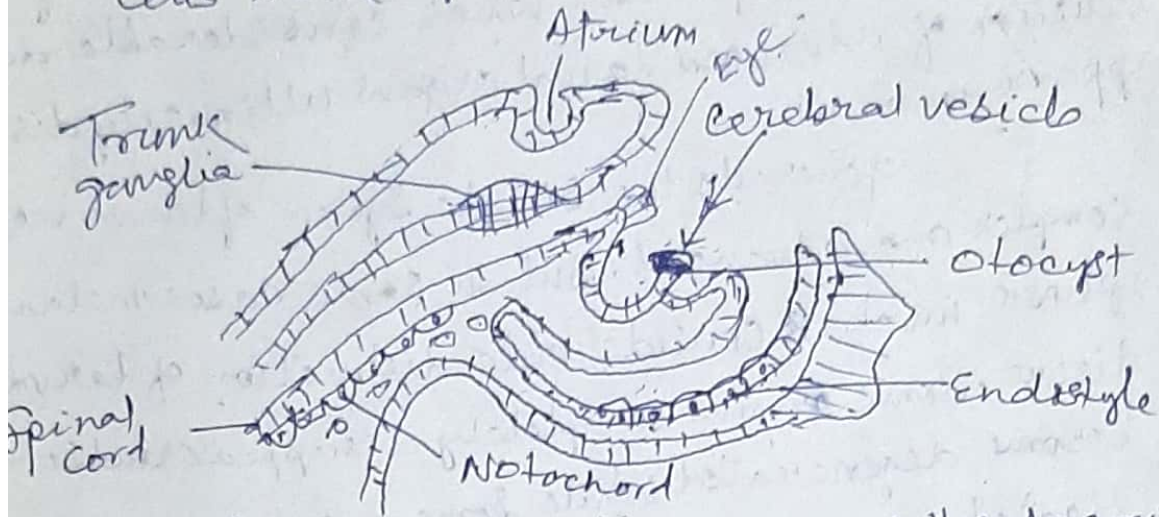 Atrium
Eye
Cerebral vesicle
Trunk
ganglia
Otocyst
Endostyle
Spinal
Cord
Notochord